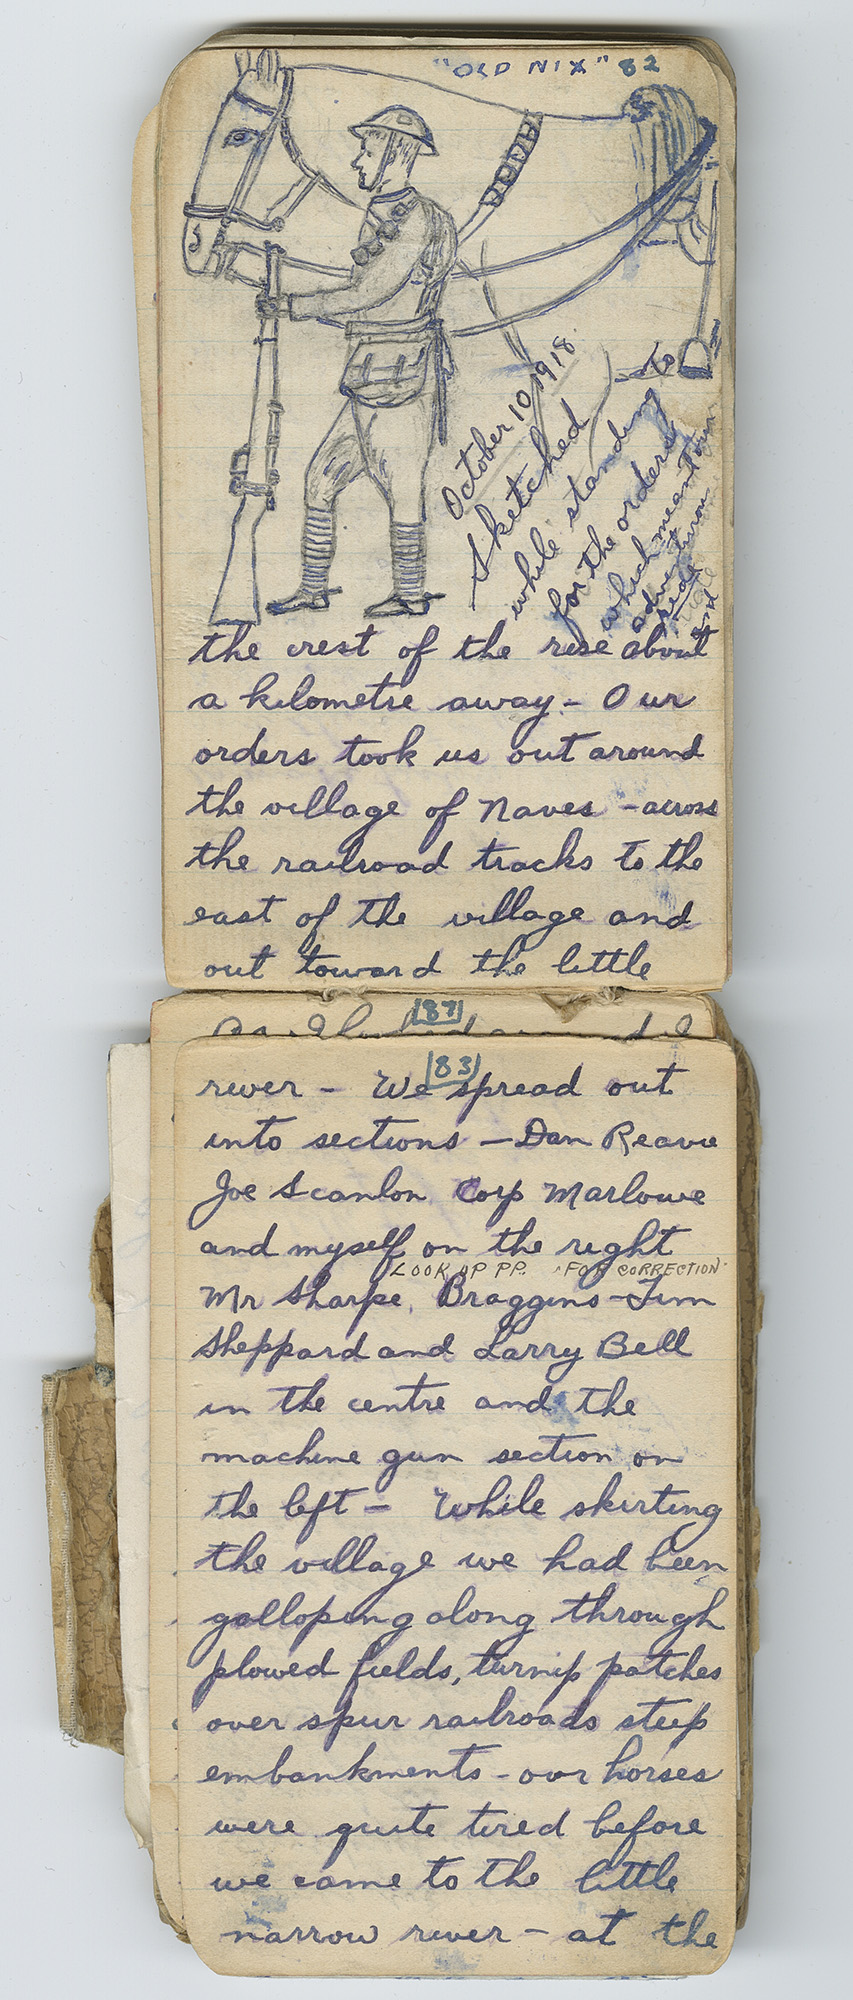 "OLD NIX" 82
October 10 1918
Sketched
while standing to
for the orders
which meant our
and
the crest of the rise about
a kilometre away - Our
orders took us out around
the village of Naves - across
the railroad tracks to the
east of the village and
out toward the little
87
83
river - We spread out
into sections - Dan Reavie
Joe Scanlon Corp Marlowe
and myself on the right
LOOK UP PP. FOR CORRECTION
Mr Sharpe, Braggins - Jim
Sheppard and Larry Bell
in the centre and the
machine gun section on
the left - While skirting
the village we had been
galloping along through
plowed fields, turnip patches
over spur railroads steep
embankments - our horses
were quite tired before
we came to the little
narrow river - at the